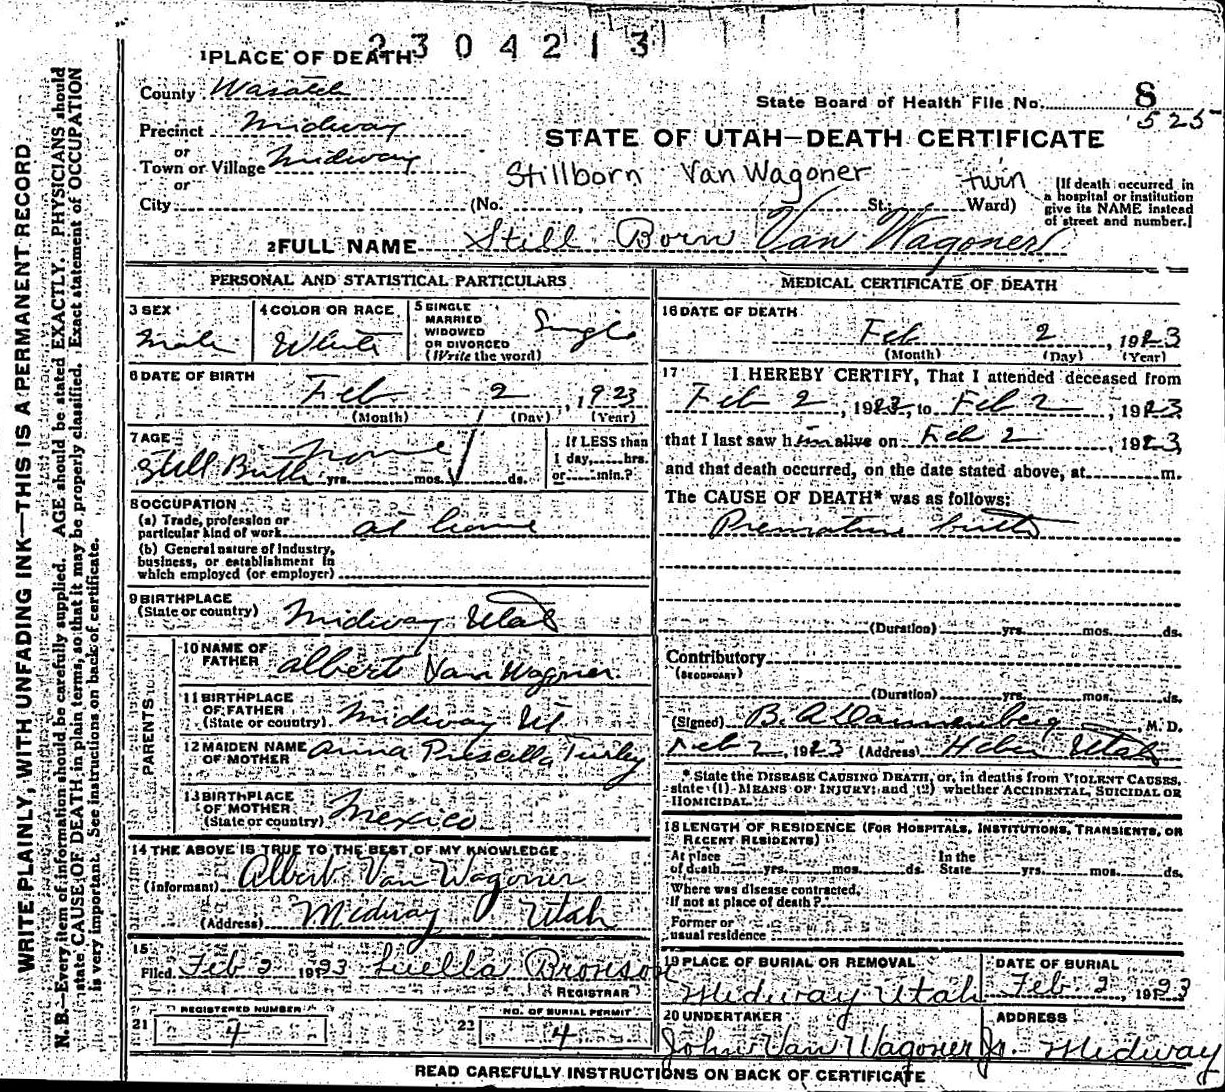 2304213
1 PLACE OF DEATH
County Wasatch
State Board of Health File No. 8
525
Precinct Midway
or
Town or Village Midway
or
City
STATE OF UTAH—DEATH CERTIFICATE
Stillborn Van Wagoner twin
(No. , St.; Ward)
[If death occurred in
a hospital or institution
give its NAME instead
of street and number.]
2 FULL NAME Still Born Van Wagoner
PERSONAL AND STATISTICAL PARTICULARS
3 SEX
Male
4 COLOR OR RACE
White
5 SINGLE
MARRIED
WIDOWED
OR DIVORCED
(Write the word)
Single
6 DATE OF BIRTH
Feb 2, 1923
(Month) (Day) (Year)
7 AGE
none
Still Birth yrs. mos. ds.
If LESS than
1 day, hrs.
or min.?
8 OCCUPATION
(a) Trade, profession or
particular kind of work at home
(b) General nature of industry,
business, or establishment in
which employed (or employer)
9 BIRTHPLACE
(State or country) Midway Utah
PARENTS
10 NAME OF
FATHER Albert Van Wagoner
11 BIRTHPLACE
OF FATHER
(State or country) Midway Ut
12 MAIDEN NAME
OF MOTHER Anna Priscella Turley
13 BIRTHPLACE
OF MOTHER
(State or country) Mexico
14 THE ABOVE IS TRUE TO THE BEST OF MY KNOWLEDGE
(Informant) Albert Van Wagoner
(Address) Midway Utah
15
Filed Feb 2 1923 Luella Bronson
REGISTRAR
21 REGISTERED NUMBER
4
22 NO. OF BURIAL PERMIT
4
MEDICAL CERTIFICATE OF DEATH
16 DATE OF DEATH
Feb 2, 1923
(Month) (Day) (Year)
17 I HEREBY CERTIFY, That I attended deceased from
Feb 2, 1923, to Feb 2, 1923
that I last saw him alive on Feb 2, 1923,
and that death occurred, on the date stated above, at m.
The CAUSE OF DEATH* was as follows:
Premature birth
(Duration) yrs. mos. ds.
Contributory
(SECONDARY)
(Duration) yrs. mos. ds.
(Signed) B. A. Dannenberg, M. D.
Feb 2, 1923 (Address) Heber Utah
* State the DISEASE CAUSING DEATH, or, in deaths from VIOLENT CAUSES,
state (1) MEANS OF INJURY; and (2) whether ACCIDENTAL, SUICIDAL OR
HOMICIDAL.
18 LENGTH OF RESIDENCE (FOR HOSPITALS, INSTITUTIONS, TRANSIENTS, OR
RECENT RESIDENTS)
At place
of death yrs. mos. ds.
In the
State yrs. mos. ds.
Where was disease contracted,
If not at place of death?
Former or
usual residence
19 PLACE OF BURIAL OR REMOVAL
Midway Utah
DATE OF BURIAL
Feb 2, 1923
20 UNDERTAKER
John Van Wagoner Jr.
ADDRESS
Midway
READ CAREFULLY INSTRUCTIONS ON BACK OF CERTIFICATE
WRITE PLAINLY, WITH UNFADING INK—THIS IS A PERMANENT RECORD.
N. B.—Every item of information should be carefully supplied. AGE should be stated EXACTLY. PHYSICIANS should
state CAUSE OF DEATH in plain terms, so that it may be properly classified. Exact statement of OCCUPATION
is very important. See instructions on back of certificate.